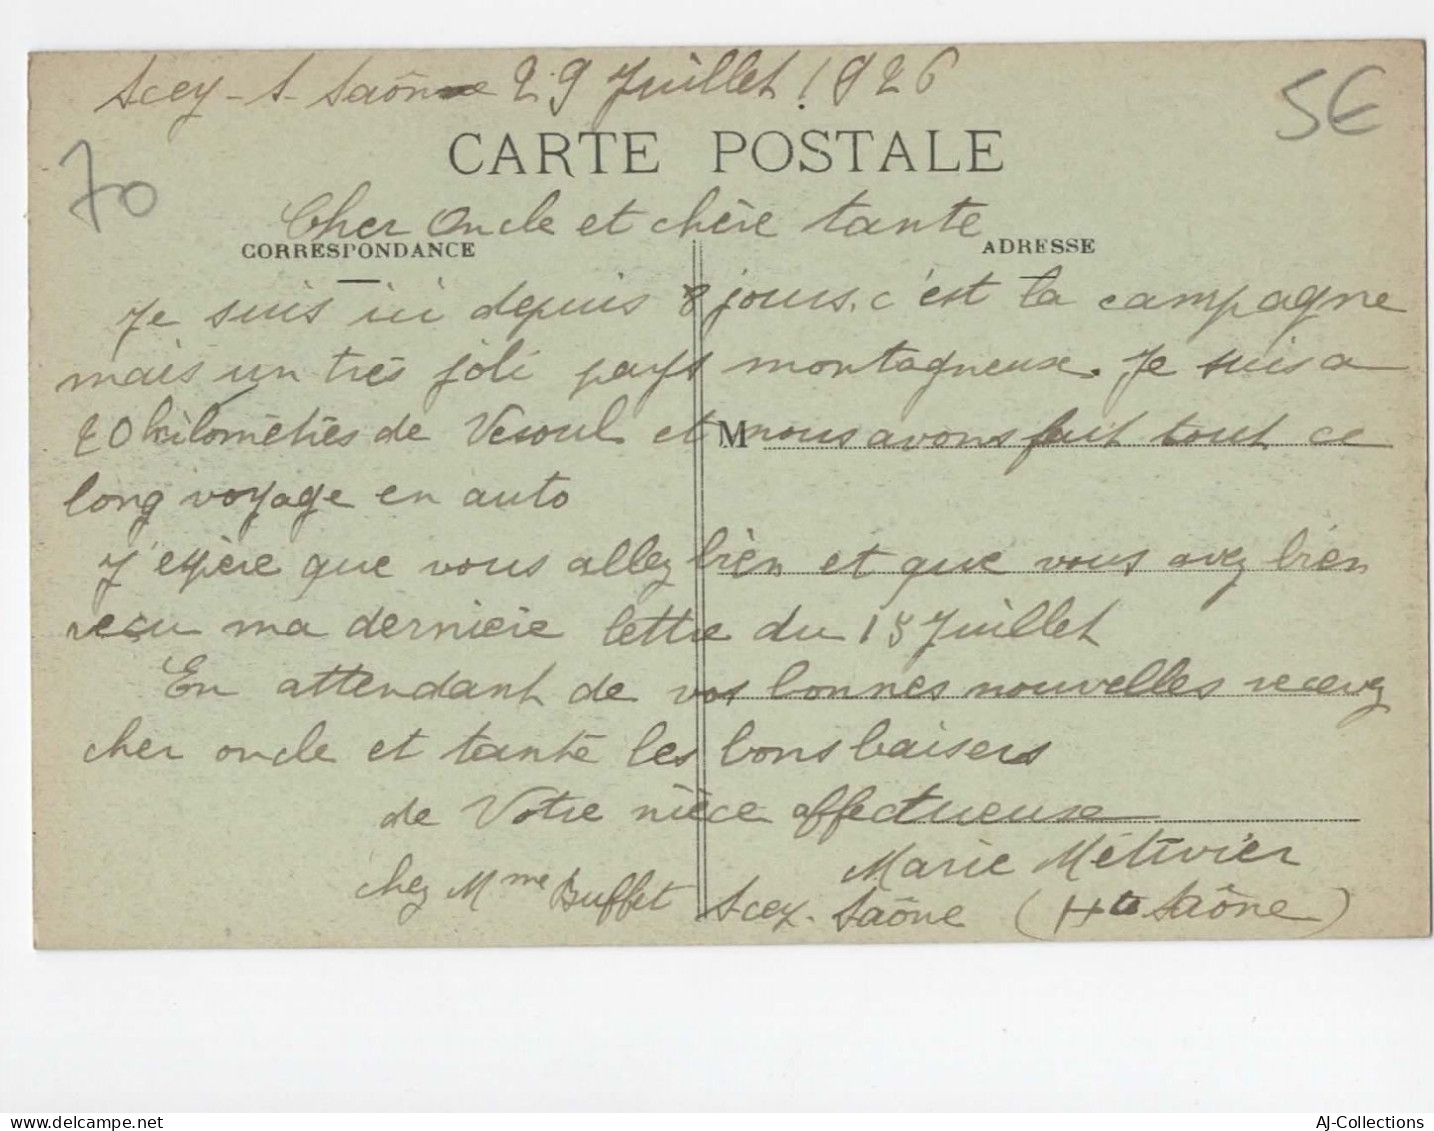 Scey-S-Saône 29 Juillet 1926
5€
CARTE POSTALE
70
Cher Oncle et chère tante
CORRESPONDANCE
ADRESSE
Je suis ici depuis 8 jours. c'est la campagne
mais un très joli pays montagneux. Je suis a
20 kilomètres de Vesoul et nous avons fait tout ce
M
long voyage en auto
J'espère que vous allez bien et que vous avez bien
reçu ma dernière lettre du 15 Juillet
En attendant de vos bonnes nouvelles recevez
cher oncle et tante les bons baisers
de Votre nièce affectueuse
Marie Métivier
chez Mme Buffet Scey-Saône (Hte Saône)
AJ-Collections
delcampe.net